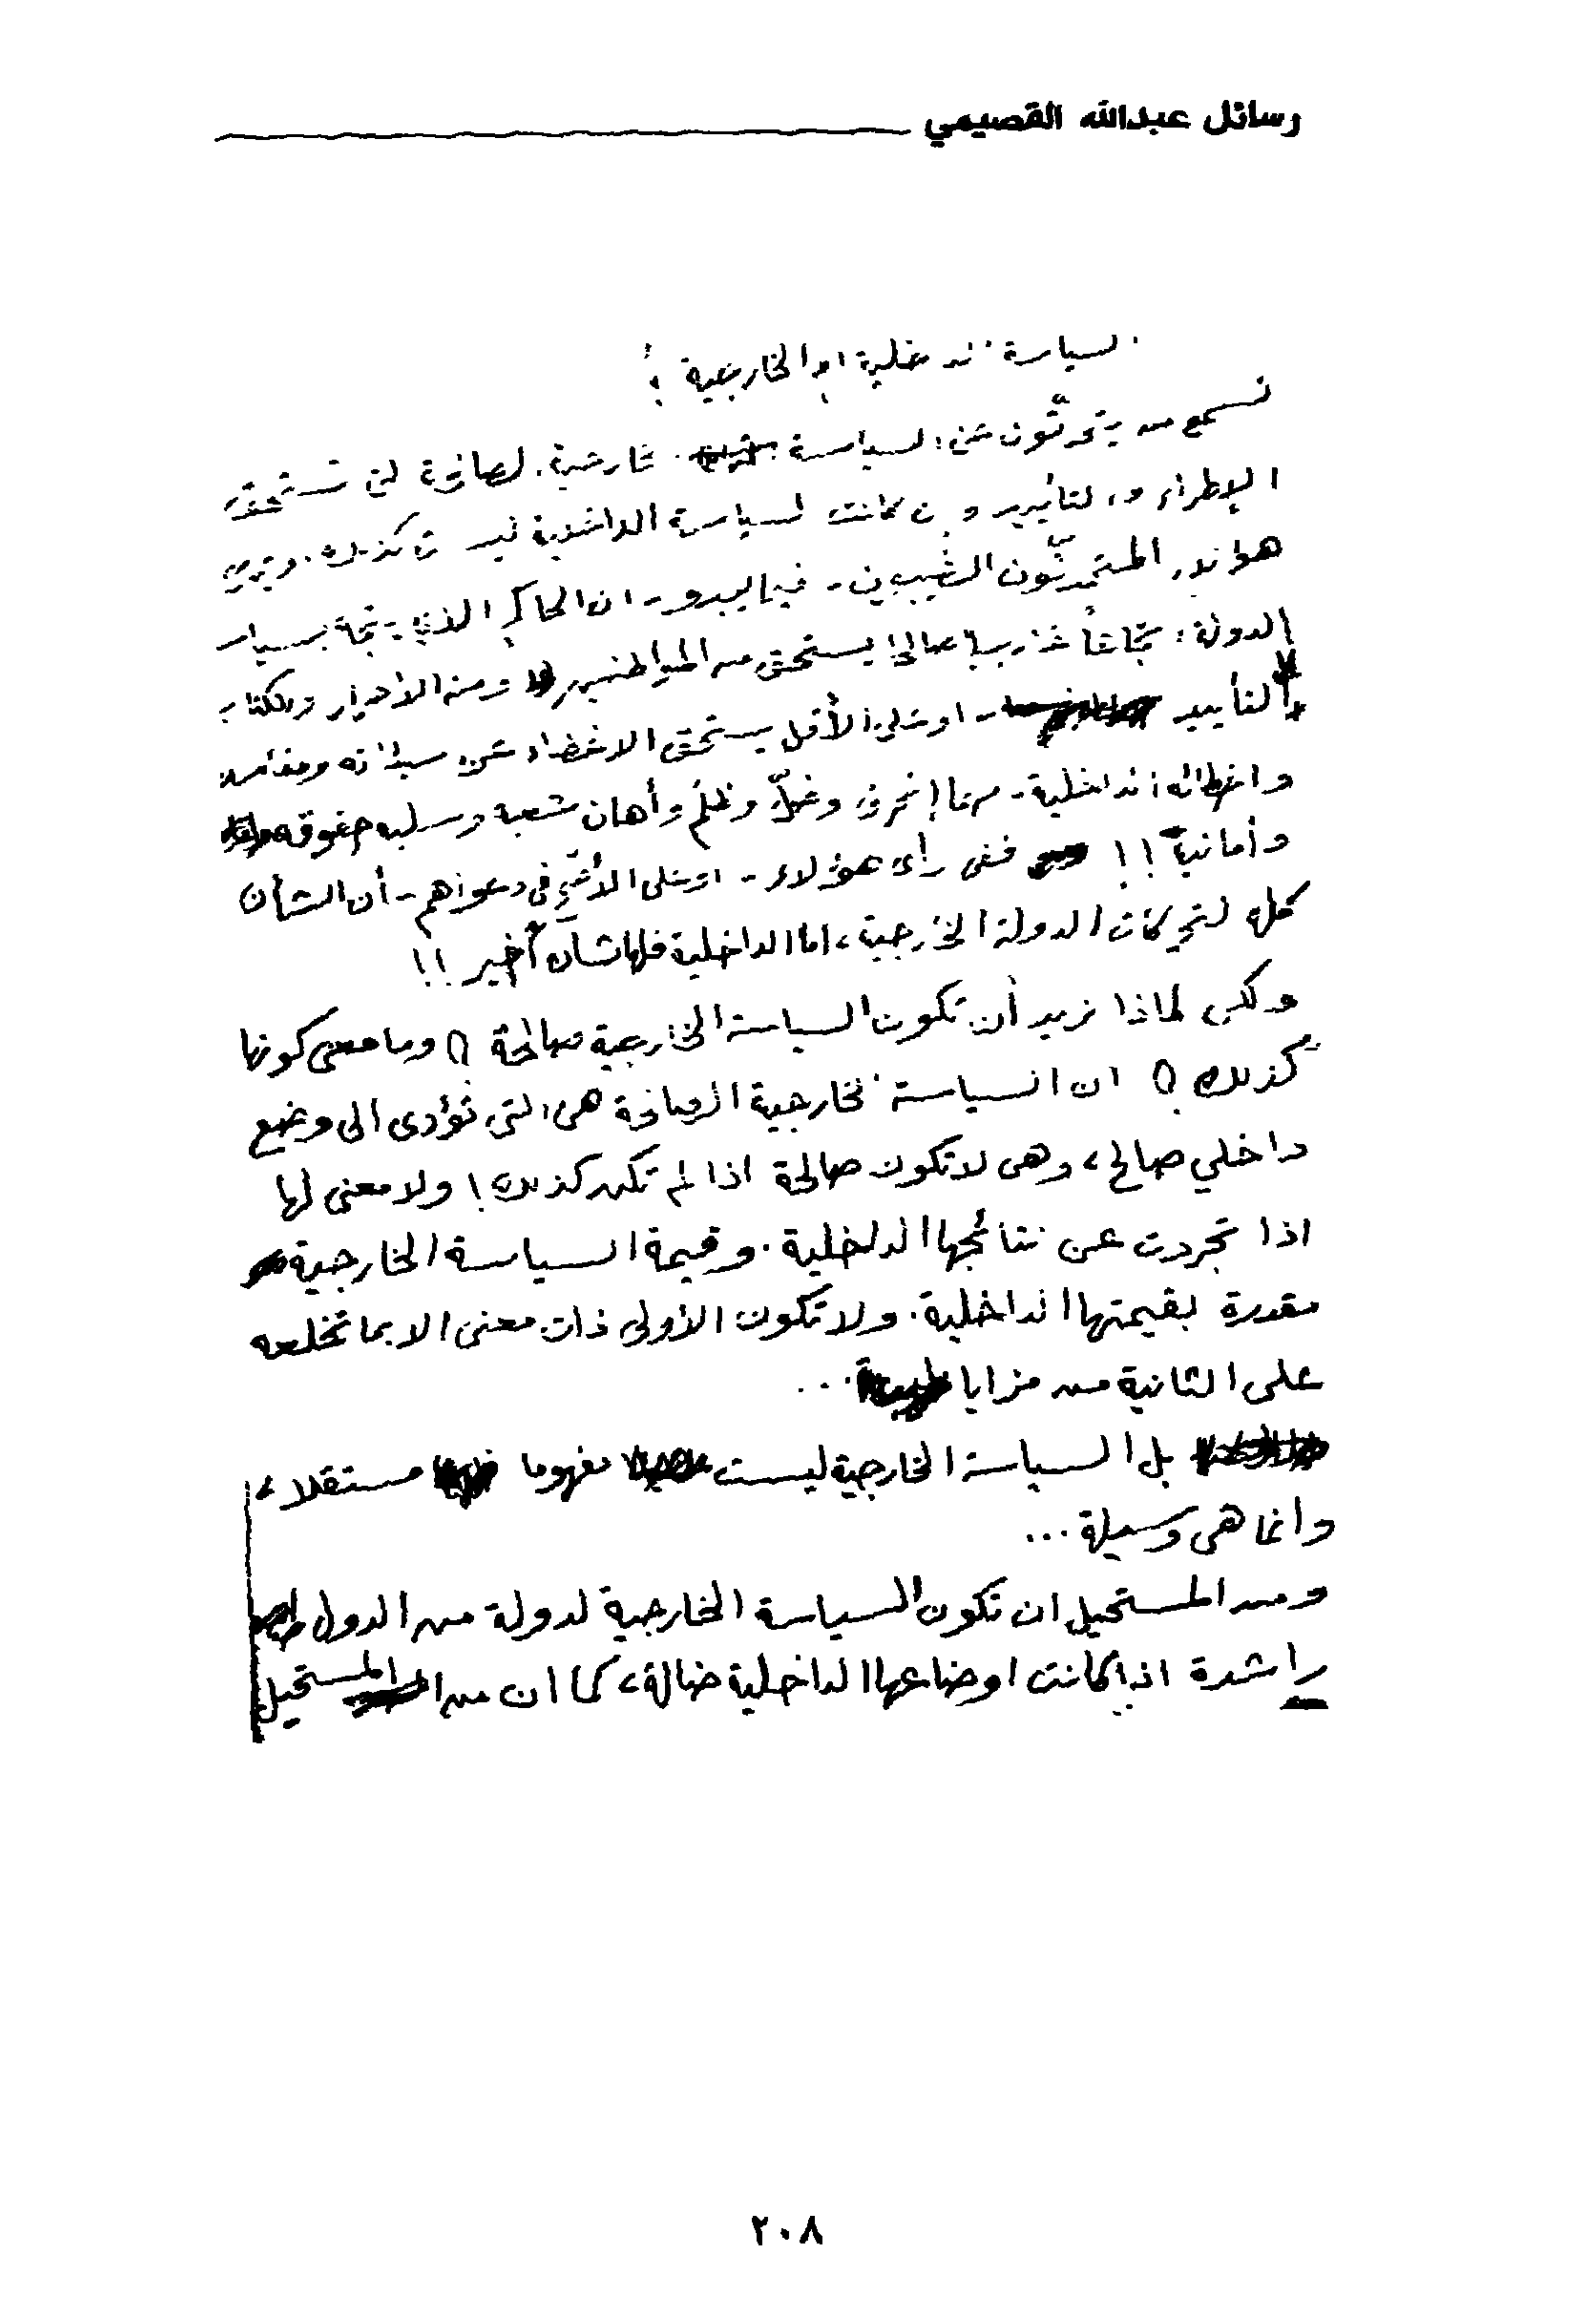 رسائل عبدالله القصيمي
السياسة الداخلية ام الخارجية ؟!
نسمع من يتحدثون عن السياسة خارجية الصالحة التي تستحق
الإطراء والتأييد وإن كانت السياسة الداخلية ليست كذلك. ويرى
هؤلاء المتحدثون الطيبون - فيما يبدو - ان الحاكم الذي يتجه بسياسة
الدولة اتجاها خارجيا صالحا يستحق من المواطنين ومن الأحرار والكتاب
التأييد - او على الأقل يستحق الاغضاء عن سيئاته
واخطائه الداخلية - مهما إنحرف وضلّ وظلم وأهان شعبه وسلبه حقوقه
وأمانيه !! ففى رأى هؤلاء - او على الأقل فى دعواهم - أن الشأن
كله لتحركات الدولة الخارجية، اما الداخلية فلها شأن آخر !!
ولكن لماذا نريد أن تكون السياسة الخارجية صالحة ؟ وما معنى كونها
كذلك ؟ ان السياسة الخارجية الصالحة هى التى تؤدى الى وضع
داخلي صالح، وهى لا تكون صالحة اذا لم تكن كذلك ! ولا معنى لها
اذا تجردت عن نتائجها الداخلية. وقيمة السياسة الخارجية
مقدرة بقيمتها الداخلية. ولا تكون الأولى ذات معنى الا بما تخلعه
على الثانية من مزايا ...
بل السياسة الخارجية ليست مفهوما مستقلا،
وانما هى وسيلة ...
ومن المستحيل ان تكون السياسة الخارجية لدولة من الدول
راشدة اذا كانت اوضاعها الداخلية ضالة، كما ان من المستحيل
٢٠٨